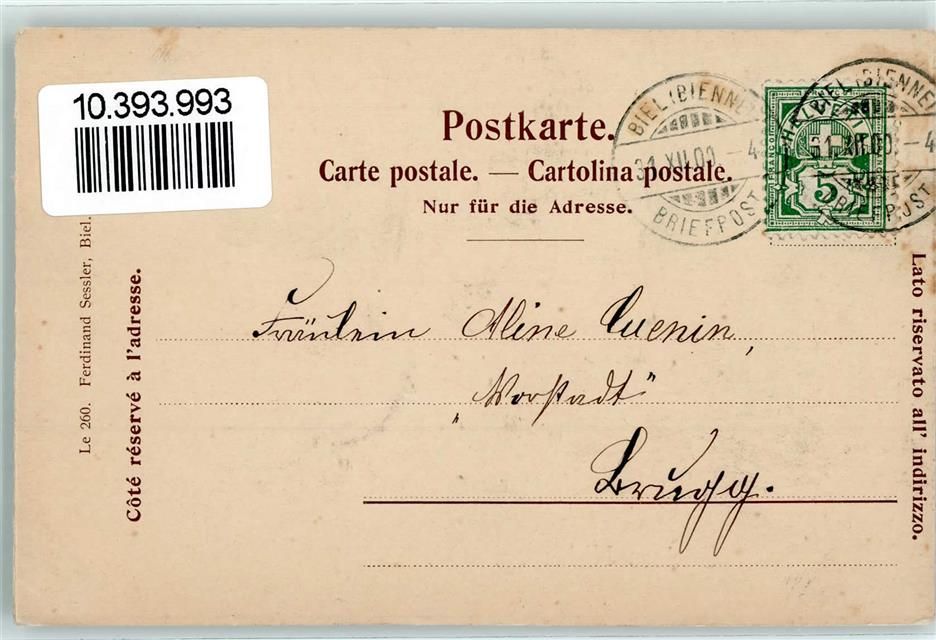 10.393.993
Postkarte.
Carte postale. — Cartolina postale.
Nur für die Adresse.
BIEL (BIENNE)
31.XII.00.-4
BRIEFPOST
HELVETIA
5
(BIENNE)
31.XII.00.-4
BRIEFPOST
Le 260. Ferdinand Sessler, Biel.
Côté réservé à l'adresse.
Lato riservato all' indirizzo.
Fräulein Aline Cuenin,
„Vorstadt"
Brugg.